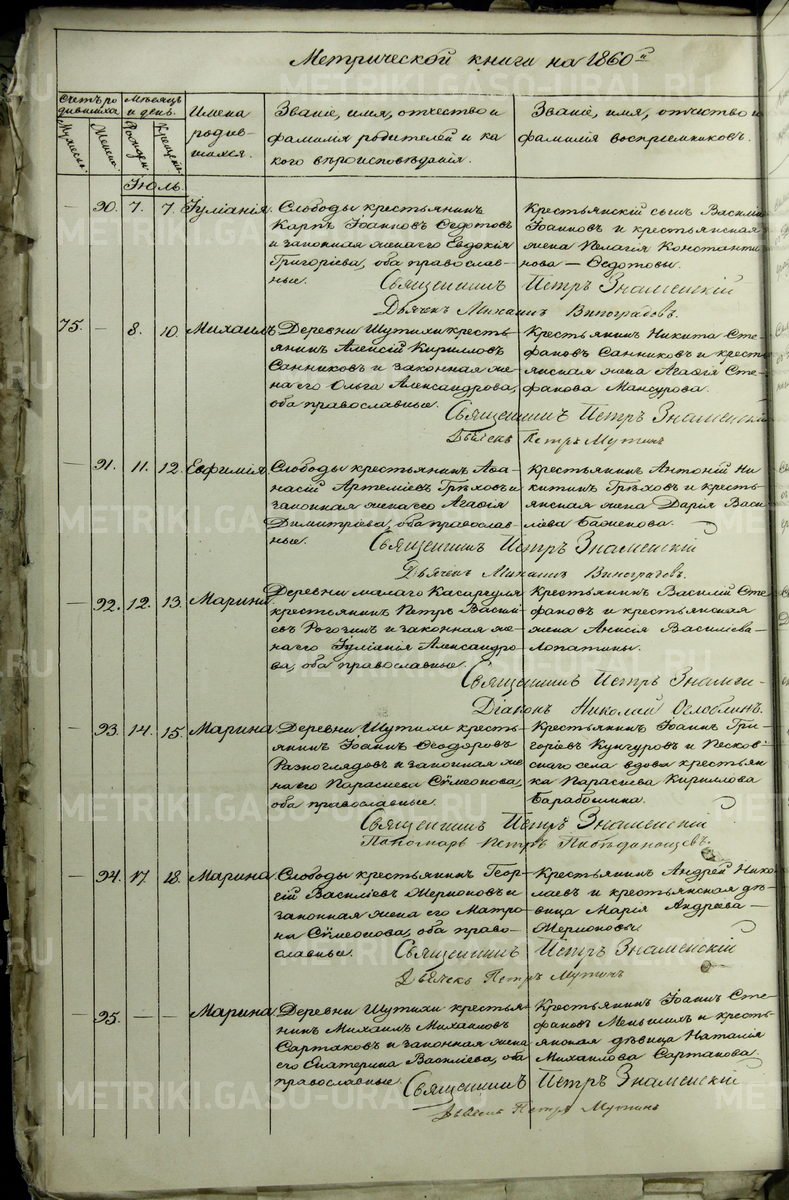 Метрической книги на 1860й
Счетъ родившихся.
Мужеска.
Женска.
Мѣсяцъ и день.
Рожден.
Крещен.
Имена родившихся.
Званіе, имя, отчество и
фамилія родителей и ка
кого вѣроисповѣданія.
Званіе, имя, отчество и
фамилія воспріемниковъ.
Іюль.
— 90. 7. 7. Іуліанія. Слободы крестьянинъ
Карпъ Іоанновъ Ѳедотовъ
и законная жена его Евдокія
Григоріева, оба православ-
ные.
Крестьянскій сынъ Василій
Іоанновъ и крестьянская
жена Пелагія Константи
нова — Ѳедотовы.
Священникъ Петръ Знаменскій
Дьячекъ Михаилъ Виноградовъ.
75. — 8. 10. Михаилъ. Деревни Шутихи кресть-
янинъ Алексій Кирилловъ
Санниковъ и законная же-
на его Ольга Александрова,
оба православные.
Крестьянинъ Никита Сте
фановъ Санниковъ и кресть
янская жена Агафія Сте-
фанова Мансурова.
Священникъ Петръ Знаменскій
Дьячекъ Петръ Мутинъ
— 91. 11. 12. Евфимія. Слободы крестьянинъ Аѳа-
насій Артеміевъ Грѣховъ и
законная жена его Агафія
Димитріева, оба православ-
ные.
Крестьянинъ Антоній Ни
китинъ Грѣховъ и кресть-
янская жена Дарія Васи
ліева Баженова.
Священникъ Петръ Знаменскій
Дьячекъ Михаилъ Виноградовъ.
— 92. 12. 13. Марина. Деревни малаго Касаргуля
крестьянинъ Петръ Василі
евъ Рогозинъ и законная же-
на его Іуліанія Александро-
ва, оба православные.
Крестьянинъ Василій Сте
фановъ и крестьянская
жена Анисія Василіева —
Лопатины.
Священникъ Петръ Знамен-
Діаконъ Николай Оглоблинъ.
— 93. 14. 15. Марина. Деревни Шутихи кресть-
янинъ Іоаннъ Ѳеодоровъ
Разноглядовъ и законная же
на его Параскева Сѵмеонова,
оба православные.
Крестьянинъ Іоаннъ Гри-
горіевъ Кунгуровъ и Песков-
скаго села вдова крестьян
ка Параскева Кириллова
Барабошкина.
Священникъ Петръ Знаменскій
Пономарь Петръ Победоносцевъ.
— 94. 17. 18. Марина. Слободы крестьянинъ Геор
гій Василіевъ Жернововъ и
законная жена его Матро
на Сѵмеонова, оба право-
славные.
Крестьянинъ Андрей Нико
лаевъ и крестьянская дѣ-
вица Марія Андреева —
Жерновы.
Священникъ Петръ Знаменскій
Дьячекъ Петръ Мутинъ
— 95. — — Марина. Деревни Шутихи крестья-
нинъ Михаилъ Михаиловъ
Сартаковъ и законная жена
его Екатерина Василіева, оба
православные.
Крестьянинъ Іоаннъ Сте-
фановъ Меньшихъ и кресть-
янская дѣвица Наталія
Михайлова Сартакова.
Священникъ Петръ Знаменскій
Дьячекъ Петръ Мутинъ
METRIKI.GASO-URAL.RU